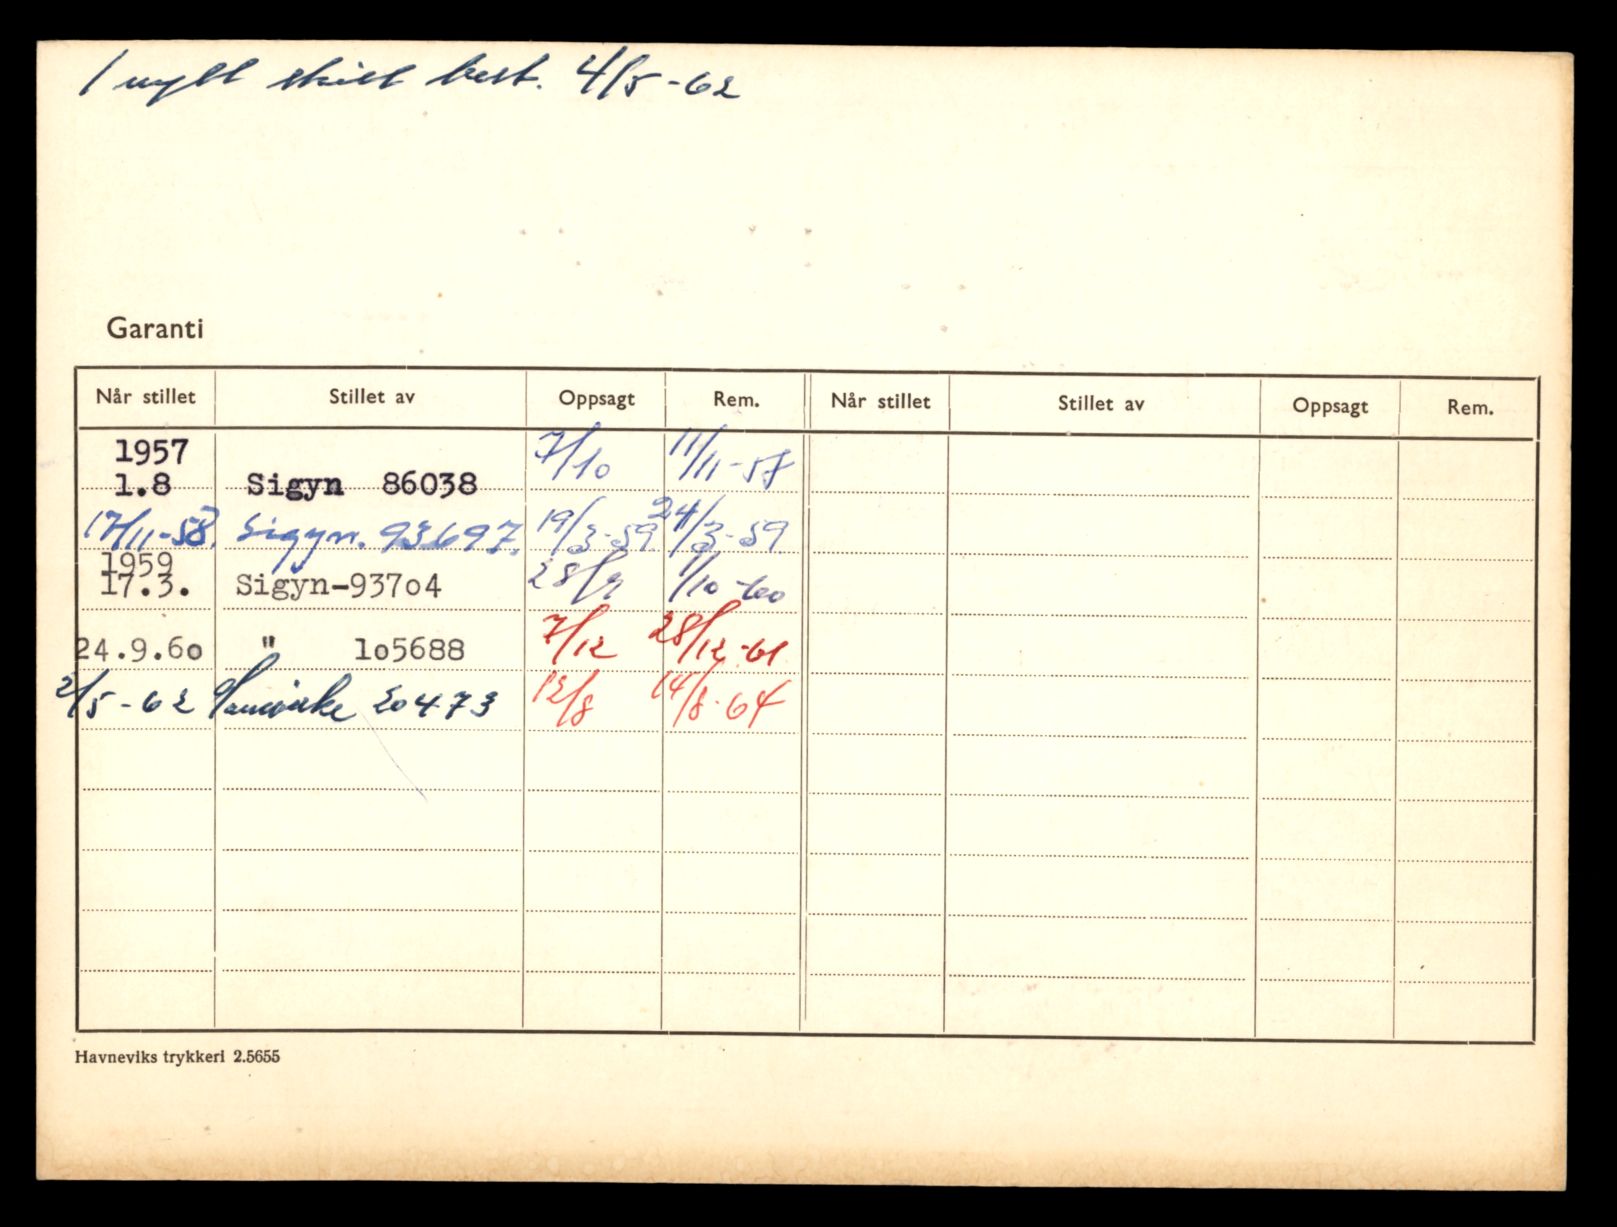 1 nytt skilt best. 4/5-62
Garanti
Når stillet Stillet av Oppsagt Rem. Når stillet Stillet av Oppsagt Rem.
1957
1.8 Sigyn 86038 7/10 11/11-57
17/11-58. Sigyn. 93697. 19/3-59 24/3-59
1959
17.3. Sigyn-937o4 28/9 1/10-60
24.9.6o " 1o5688 7/12 28/12-61
2/5-62 Samvirke 20473 12/8 14/8-64
Havneviks trykkeri 2.5655